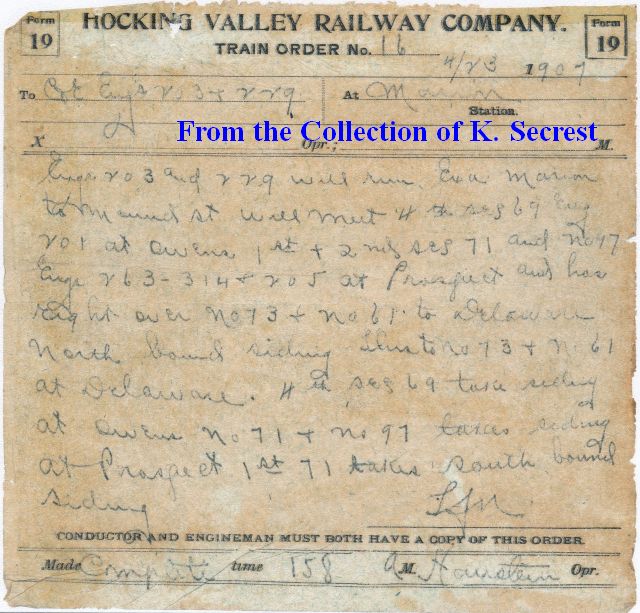 Form 19
HOCKING VALLEY RAILWAY COMPANY.
Form 19
TRAIN ORDER No. 16
4/23 1907
To C&E Eng's 203 + 229 At Marion
Station.
From the Collection of K. Secrest
X Opr.; M.
Engs 203 and 229 will run Exa Marion
to Mound st will meet 4th sec 69 Eng
201 at Owens 1st + 2nd sec 71 and no 97
Engs 263-314 + 205 at Prospect and has
right over no 73 + no 61 to Delaware
North bound siding no 73 + no 61
at Delaware. 4th sec 69 take siding
at Owens No 71 + No 97 takes siding
at Prospect 1st 71 takes south bound
siding
CONDUCTOR AND ENGINEMAN MUST BOTH HAVE A COPY OF THIS ORDER.
Made Complete time 158 A M. Opr.